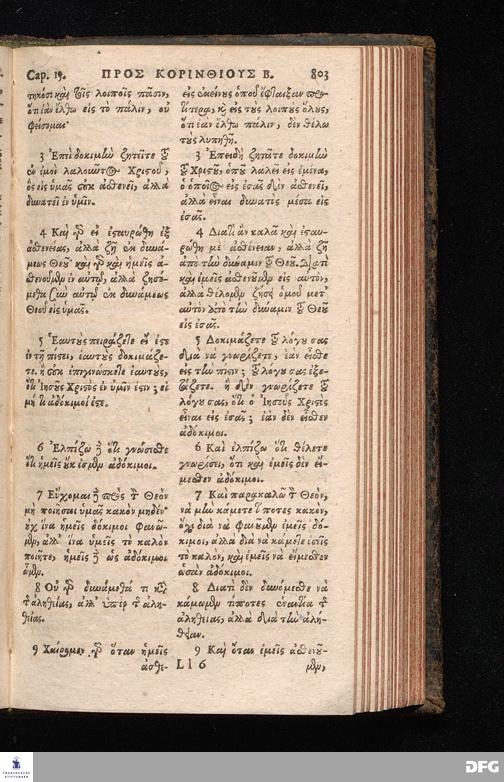 Cap. 19. ΠΡΟΣ ΚΟΡΙΝΘΙΟΥΣ Β. 803
τηκόσι καὶ τοῖς λοιποῖς πᾶσιν,
ὅτι ἐὰν ἔλθω εἰς τὸ πάλιν, οὐ
φείσομαι·
3 Ἐπεὶ δοκιμὴν ζητεῖτε τοῦ
ἐν ἐμοὶ λαλοῦντος Χριστοῦ,
ὃς εἰς ὑμᾶς οὐκ ἀσθενεῖ, ἀλλὰ
δυνατεῖ ἐν ὑμῖν.
4 Καὶ γὰρ εἰ ἐσταυρώθη ἐξ
ἀσθενείας, ἀλλὰ ζῇ ἐκ δυνά-
μεως Θεοῦ· καὶ γὰρ καὶ ἡμεῖς ἀ-
σθενοῦμεν ἐν αὐτῷ, ἀλλὰ ζησό-
μεθα σὺν αὐτῷ ἐκ δυνάμεως
Θεοῦ εἰς ὑμᾶς.
5 Ἑαυτοὺς πειράζετε εἰ ἐστὲ
ἐν τῇ πίστει, ἑαυτοὺς δοκιμάζε-
τε. ἢ οὐκ ἐπιγινώσκετε ἑαυτοὺς,
ὅτι Ἰησοῦς Χριστὸς ἐν ὑμῖν ἐστιν; εἰ
μή τι ἀδόκιμοί ἐστε.
6 Ἐλπίζω δὲ ὅτι γνώσεσθε
ὅτι ἡμεῖς οὐκ ἐσμὲν ἀδόκιμοι.
7 Εὔχομαι δὲ πρὸς τὸν Θεὸν
μὴ ποιῆσαι ὑμᾶς κακὸν μηδὲν·
οὐχ ἵνα ἡμεῖς δόκιμοι φανῶ-
μεν, ἀλλ' ἵνα ὑμεῖς τὸ καλὸν
ποιῆτε, ἡμεῖς δὲ ὡς ἀδόκιμοι
ὦμεν.
8 Οὐ γὰρ δυνάμεθά τι κατὰ
τῆς ἀληθείας, ἀλλ' ὑπὲρ τῆς ἀλη-
θείας.
9 Χαίρομεν γὰρ ὅταν ἡμεῖς
ἀσθε-
εἰς ἐκείνους ὁποῦ ἔφταιξαν προ-
ἵτερα, καὶ εἰς τοὺς λοιποὺς ὅλους,
ὅτι ἐὰν ἔλθω πάλιν, δὲν θέλω
τοὺς λυπηθῆ.
3 Ἐπειδὴ ζητᾶτε δοκιμὴν
τοῦ Χριστοῦ, ὁποῦ λαλεῖ εἰς ἐμένα,
ὁ ὁποῖος εἰς ἐσᾶς δὲν ἀσθενεῖ,
ἀλλὰ εἶναι δυνατὸς μέσα εἰς
ἐσᾶς.
4 Διατὶ ἂν καλὰ καὶ ἐσταυ-
ρώθη μὲ ἀσθένειαν, ἀλλὰ ζῇ
ἀπὸ τὴν δύναμιν τοῦ Θεοῦ. Διατὶ
καὶ ἐμεῖς ἀσθενοῦμεν εἰς αὐτὸν,
ἀλλὰ θέλομεν ζήση ὁμοῦ μετ'
αὐτὸν ἀπὸ τὴν δύναμιν τοῦ Θεοῦ
εἰς ἐσᾶς.
5 Δοκιμάζετε τοῦ λόγου σας
διὰ νὰ γνωρίζετε, ἐὰν εἶσθε
εἰς τὴν πίστιν; τοῦ λόγου σας ἐξε-
τάζετε. ἢ δὲν γνωρίζετε τοῦ
λόγου σας, ὅτι ὁ Ἰησοῦς Χριστὸς
εἶναι εἰς ἐσᾶς; ἐὰν δὲν εἶσθεν
ἀδόκιμοι.
6 Καὶ ἐλπίζω ὅτι θέλετε
γνωρίσει, ὅτι ἐμεῖς δὲν εἴ-
μεσθεν ἀδόκιμοι.
7 Καὶ παρακαλῶ τὸν Θεὸν,
νὰ μὴν κάμετε τίποτες κακὸν,
ὄχι διὰ νὰ φανοῦμεν ἐμεῖς δό-
κιμοι, ἀλλὰ διὰ νὰ κάμετε ἐσεῖς
τὸ καλὸν, καὶ ἐμεῖς νὰ εἴμεσθεν
ὡσὰν ἀδόκιμοι.
8 Διατὶ δὲν δυνόμεσθε νὰ
κάμωμεν τίποτες ἐναντία τῆς
ἀληθείας, ἀλλὰ διὰ τὴν ἀλή-
θειαν.
9 Καὶ ὅταν ἐμεῖς ἀσθενοῦ-
L l 6 μεν,
FRANCKESCHE STIFTUNGEN
DFG